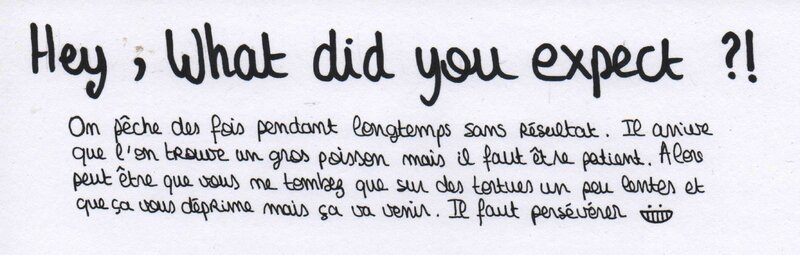 Hey, What did you expect ?!
On pêche des fois pendant longtemps sans résultat. Il arrive
que l'on trouve un gros poisson mais il faut être patient. Alors
peut être que vous ne tombez que sur des tortues un peu lentes et
que ça vous déprime mais ça va venir. Il faut persévérer